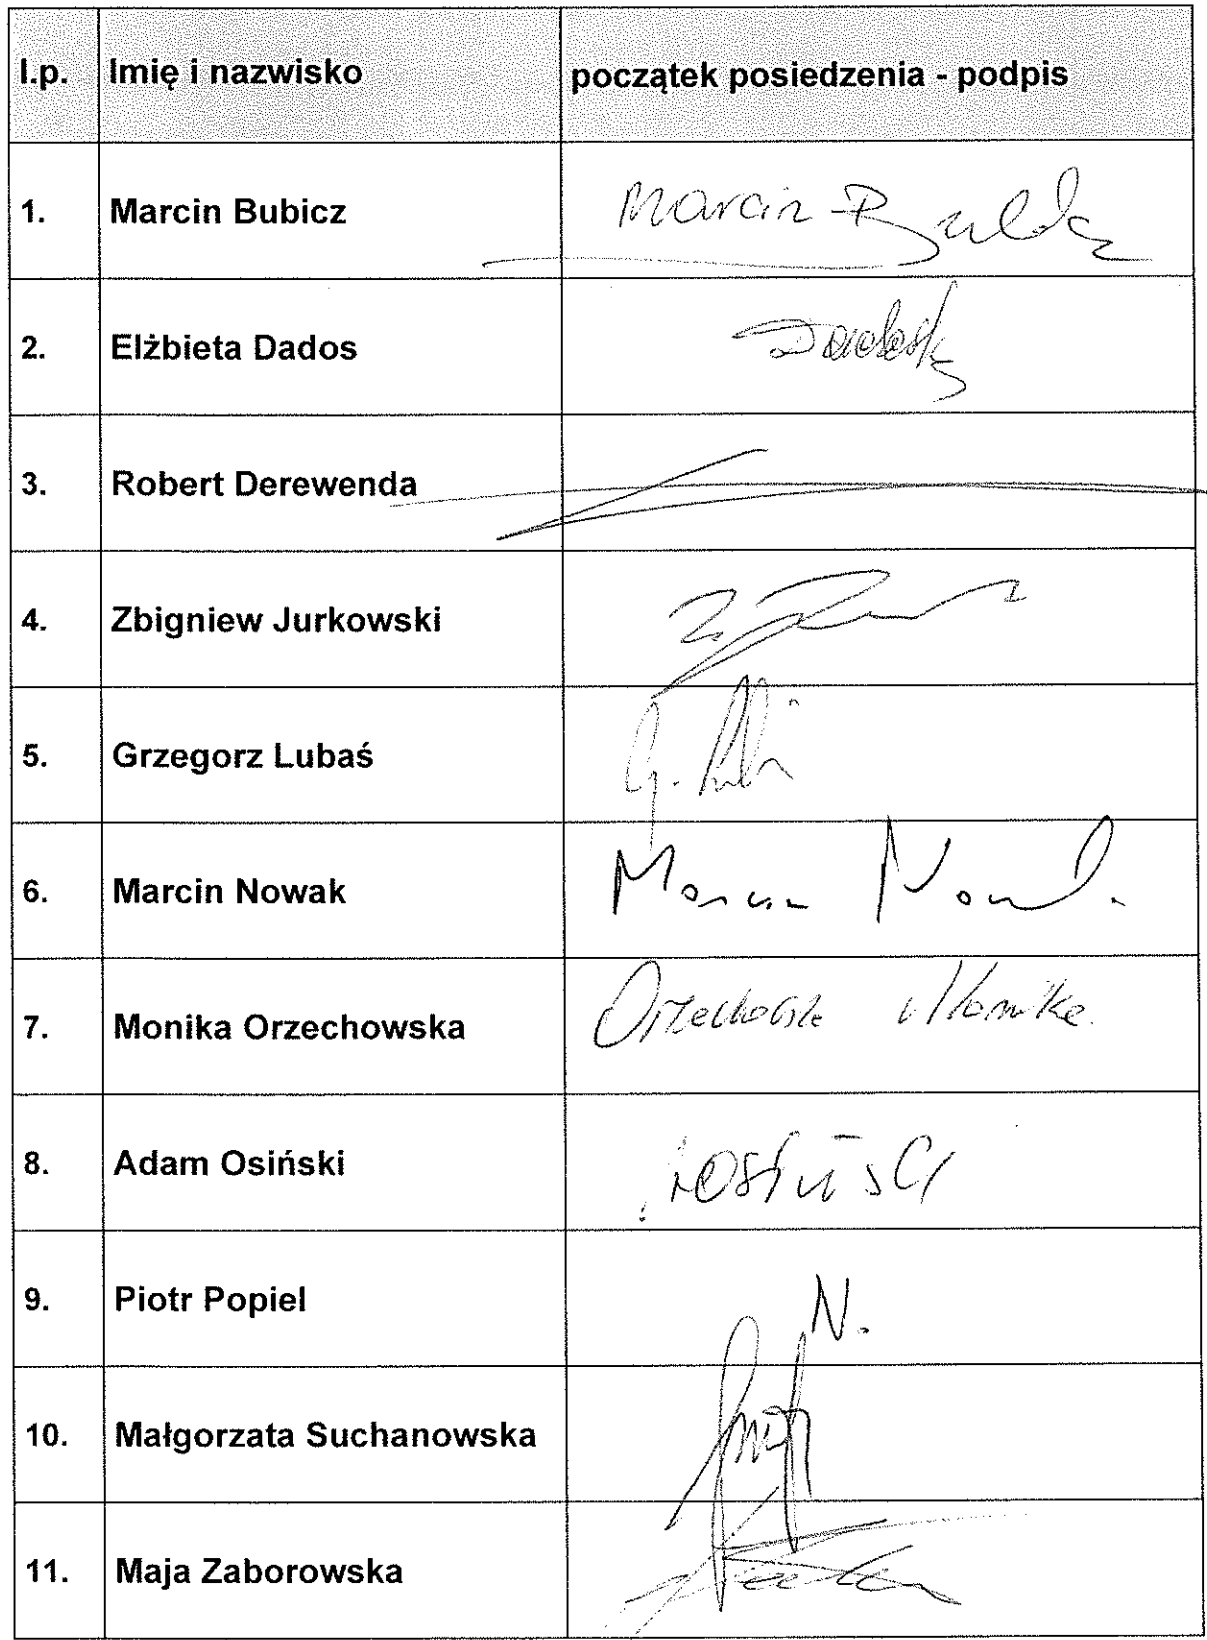 l.p. Imię i nazwisko początek posiedzenia - podpis
1. Marcin Bubicz Marcin
2. Elżbieta Dados
3. Robert Derewenda
4. Zbigniew Jurkowski
5. Grzegorz Lubaś G.
6. Marcin Nowak Marcin Nowak
7. Monika Orzechowska Orzechowska Monika
8. Adam Osiński
9. Piotr Popiel N.
10. Małgorzata Suchanowska
11. Maja Zaborowska